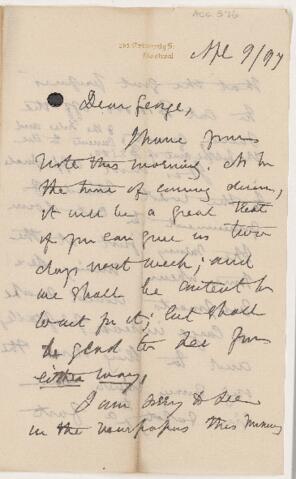 ACC 576
293 University St
Montreal
Apl 9/97
Dear George,
I have yours
note this morning. As to
the time of coming down,
it will be a great treat
if you can give us two
days next week; and
we shall be content to
wait for it; but shall
be glad to see you
either way.
I am sorry to see
in the newspapers this morning